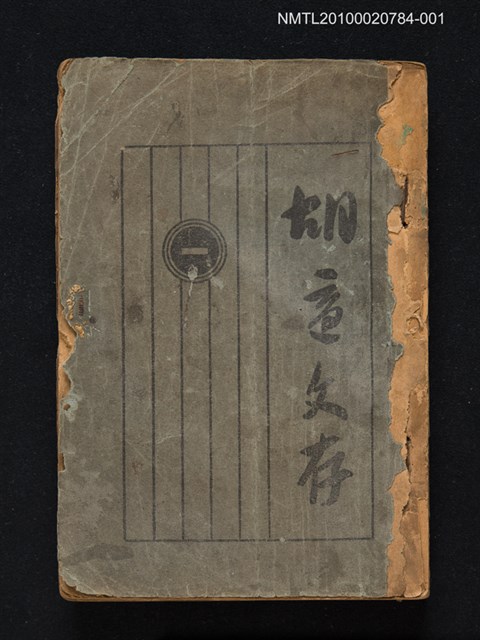 NMTL20100020784-001
胡適文存
一